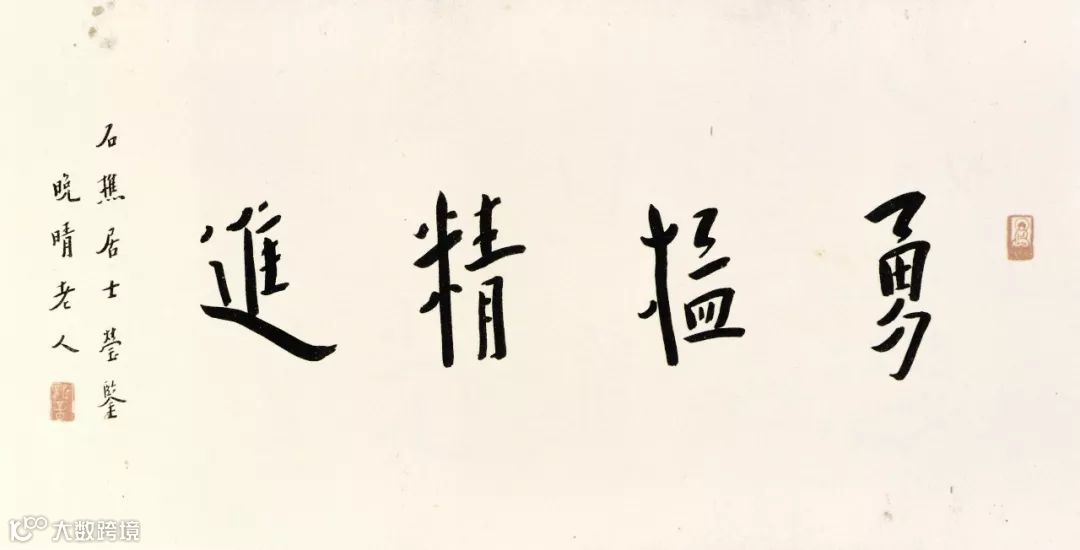 勇猛精進
石樵居士瑩鑒
晚晴老人
大数跨境